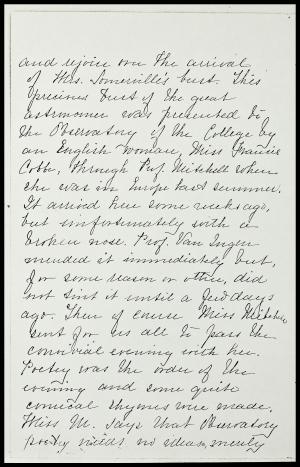 and rejoice over the arrival
of Mrs. Somerville's bust. This
precious bust of the great
astronomer was presented to
the Observatory of the College by
an English woman, Miss Francis
Cobbe, through Prof. Mitchell when
she was in Europe last summer.
It arrived here some weeks ago,
but unfortunately with a
broken nose. Prof. Van Ingen
mended it immediately but,
for some reason or other, did
not tint it until a few days
ago. Then of course Miss Mitchell
sent for us all to pass the
convivial evening with her.
Poetry was the order of the
evening and some quite
comical rhymes were made.
Miss M. says that Observatory
poetry needs no ideas, merely